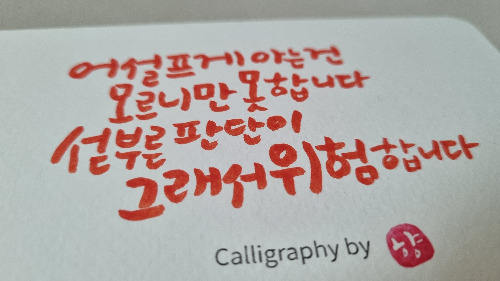 어설프게 아는건
모르니만 못합니다
섣부른 판단이
그래서 위험합니다
Calligraphy by 향